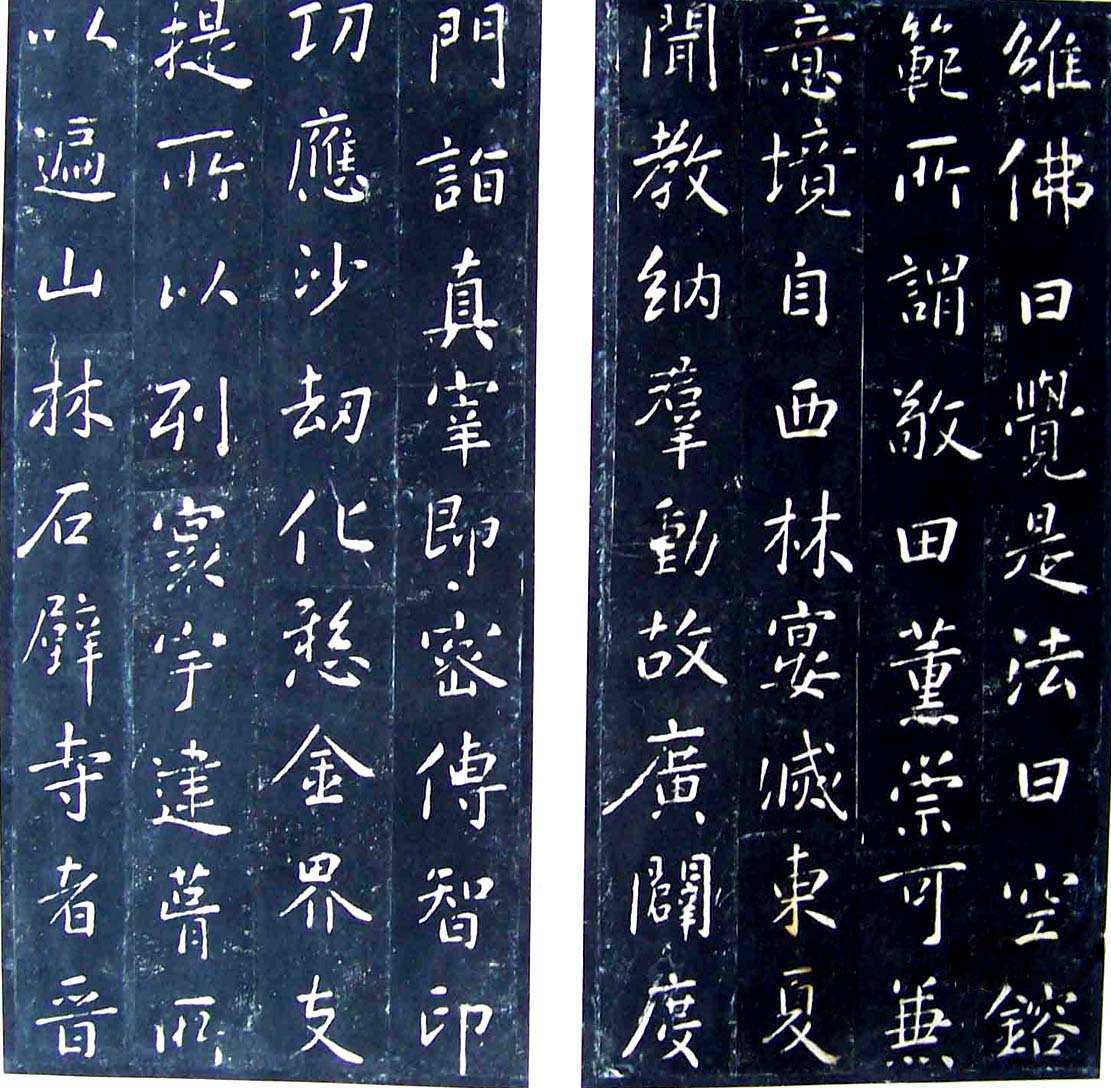 維佛曰覺是法曰空鎔
範所謂敬田薰崇可無
意境自西林宴滅東夏
聞教納羣動故廣闢度
門詣真宰即密傳智印
功應沙劫化金界支
提所以列寰宇達所
以遍山林石壁寺者晉